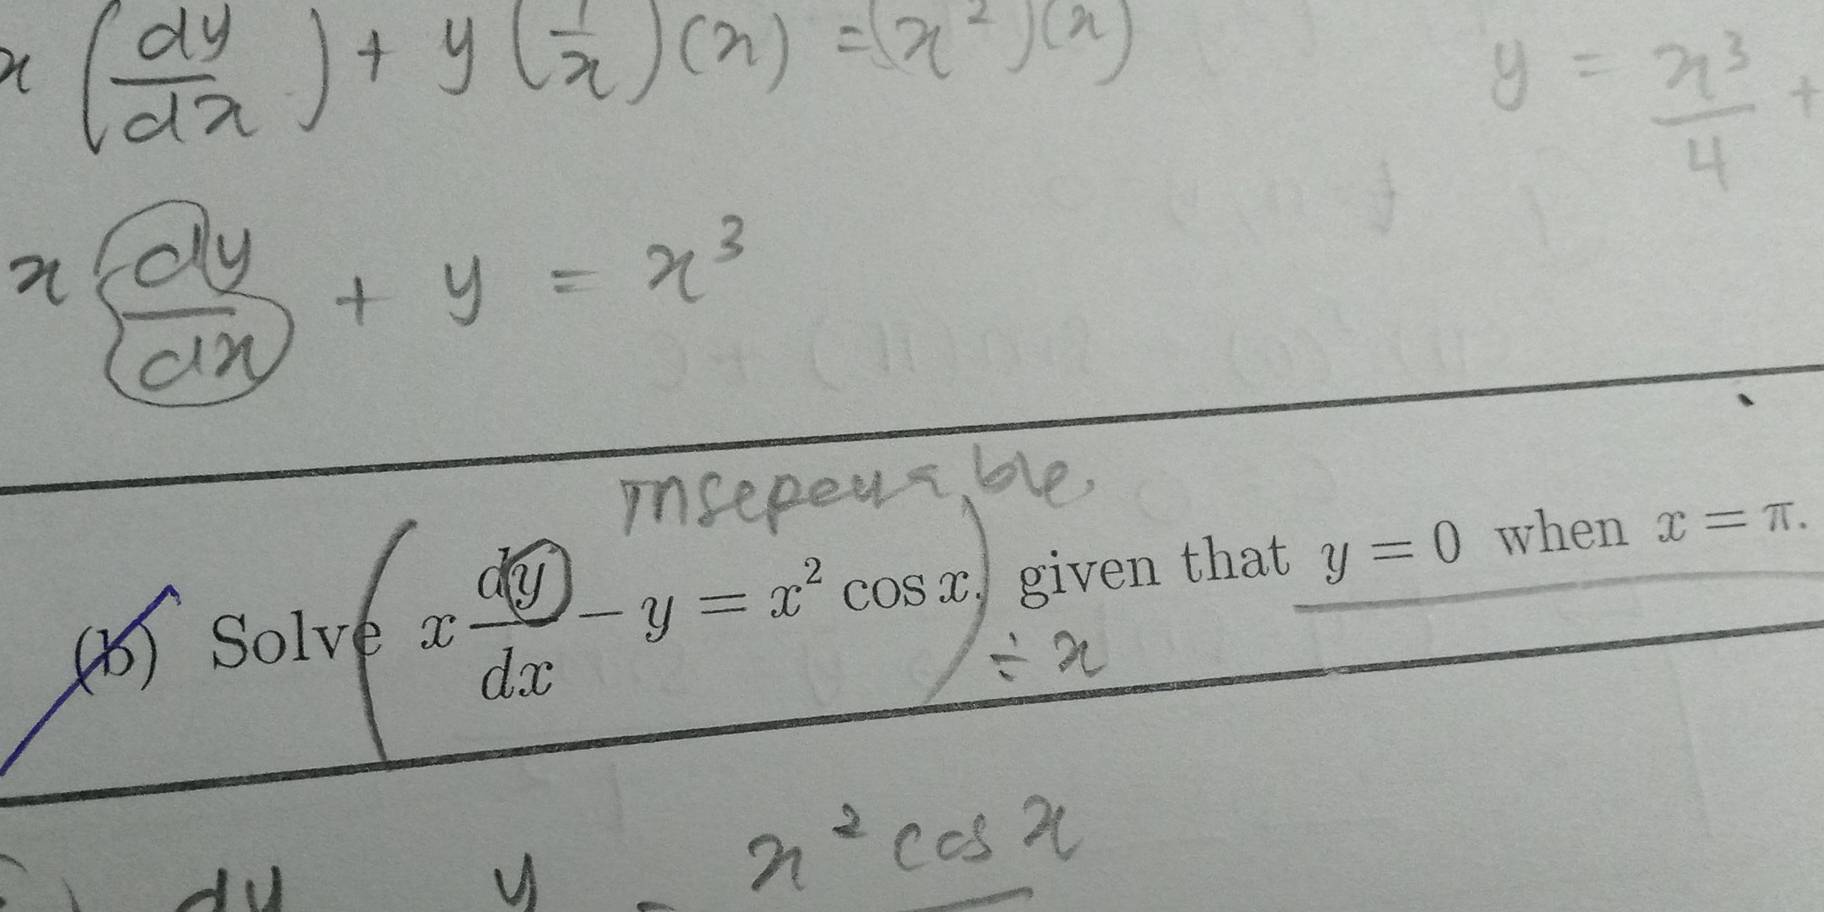 x (dy/dx) + y (1/x) (x) = (x²)(x)
y = x³/4 +
x dy/dx + y = x³
(b) Solve x dy/dx − y = x² cos x, given that y = 0 when x = π.
÷ x
dy y x² cos x